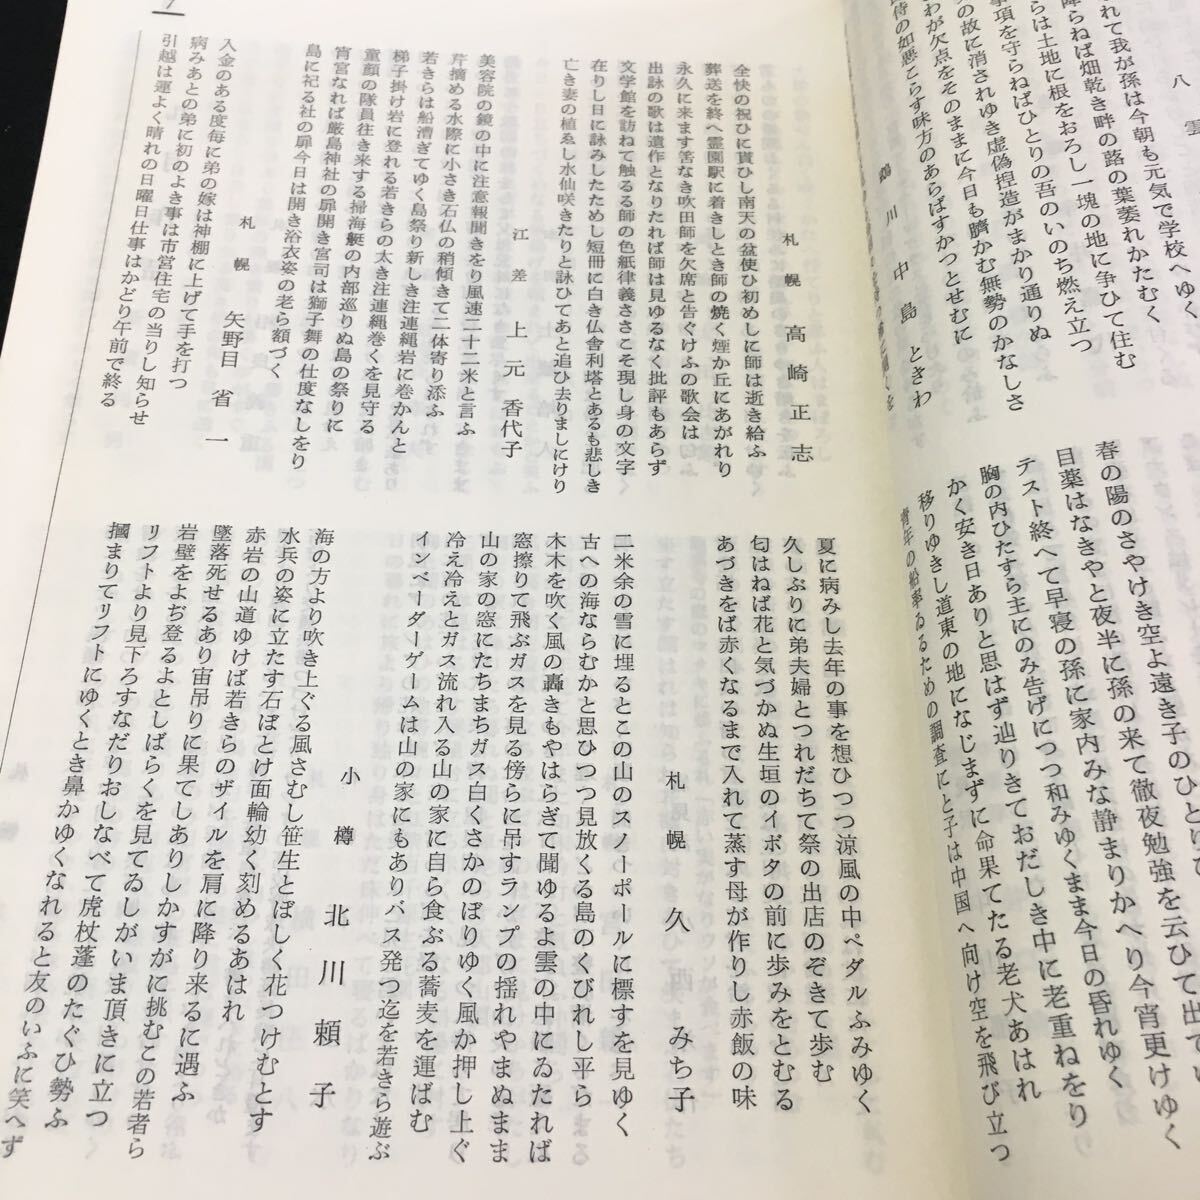 八雲
れて我が孫は今朝も元気で学校へゆく
降らねば畑乾き畔の蕗の葉萎れかたむく
らは土地に根をおろし一塊の地に争ひて住む
事項を守らねばひとりの吾のいのち燃え立つ
の故に消されゆき虚偽捏造がまかり通りぬ
わが欠点をそのままに今日も臍かむ無勢のかなしさ
侍の如悪こらす味方のあらばすかつとせむに
川中島ときわ
春の陽のさやけき空よ遠き子のひとり
目薬はなきやと夜半に孫の来て徹夜勉強を云ひて出て
テスト終へて早寝の孫に家内みな静まりかへり今宵更けゆく
胸の内ひたすら主にのみ告げにつつ和みゆくまま今日の昏れゆく
かく安き日ありと思はず辿りきておだしき中に老重ねをり
移りゆきし道東の地になじまずに命果てたる老犬あはれ
青年の船率ゐるための調査にと子は中国へ向け空を飛び立つ
札幌 高崎正志
全快の祝ひに貰ひし南天の盆使ひ初めしに師は逝き給ふ
葬送を終へ霊園駅に着きしとき師の焼く煙か丘にあがれり
永久に来ます筈なき吹田師を欠席と告ぐけふの歌会は
出詠の歌は遺作となりたれば師は見ゆるなく批評もあらず
文学館を訪ねて触る師の色紙律義ささこそ現し身の文字
在りし日に詠みしためし短冊に白き仏舎利塔とあるも悲しき
亡き妻の植ゑし水仙咲きたりと詠ひてあと追ひ去りましにけり
江差 上元香代子
美容院の鏡の中に注意報聞きをり風速二十二米と言ふ
芹摘める水際に小さき石仏の稍傾きて二体寄り添ふ
若きらは船漕ぎてゆく島祭り新しき注連縄岩に巻かんと
梯子掛け岩に登れる若きらの太き注連縄巻くを見守る
童顔の隊員往き来する掃海艇の内部巡りぬ島の祭りに
宵宮なれば厳島神社の扉開き宮司は獅子舞の仕度なしをり
島に祀る社の扉今日は開き浴衣姿の老ら額づく
札幌 矢野目省一
入金のある度毎に弟の嫁は神棚に上げて手を打つ
病みあとの弟に初のよき事は市営住宅の当りし知らせ
引越は運よく晴れの日曜日仕事はかどり午前で終る
夏に病みし去年の事を想ひつつ涼風の中ペダルふみゆく
久しぶりに弟夫婦とつれだちて祭の出店のぞきて歩む
匂はねば花と気づかぬ生垣のイボタの前に歩みをとむる
あづきをば赤くなるまで入れて蒸す母が作りし赤飯の味
札幌 久西みち子
二米余の雪に埋るとこの山のスノーポールに標すを見ゆく
古への海ならむかと思ひつつ見放くる島のくびれし平ら
木木を吹く風の轟きもやはらぎて聞ゆるよ雲の中にゐたれば
窓擦りて飛ぶガスを見る傍らに吊すランプの揺れやまぬまま
山の家の窓にたちまちガス白くさかのぼりゆく風か押し上ぐ
冷え冷えとガス流れ入る山の家に自ら食ぶる蕎麦を運ばむ
インベーダーゲームは山の家にもありバス発つ迄を若きら遊ぶ
小樽 北川頼子
海の方より吹き上ぐる風さむし笹生とぼしく花つけむとす
水兵の姿に立たす石ぼとけ面輪幼く刻めるあはれ
赤岩の山道ゆけば若きらのザイルを肩に降り来るに遇ふ
墜落死せるあり宙吊りに果てしありしかすがに挑むこの若者ら
岩壁をよぢ登るよとしばらくを見てゐしがいま頂きに立つ
リフトより見下ろすなだりおしなべて虎杖蓬のたぐひ勢ふ
摑まりてリフトにゆくとき鼻かゆくなれると友のいふに笑へず